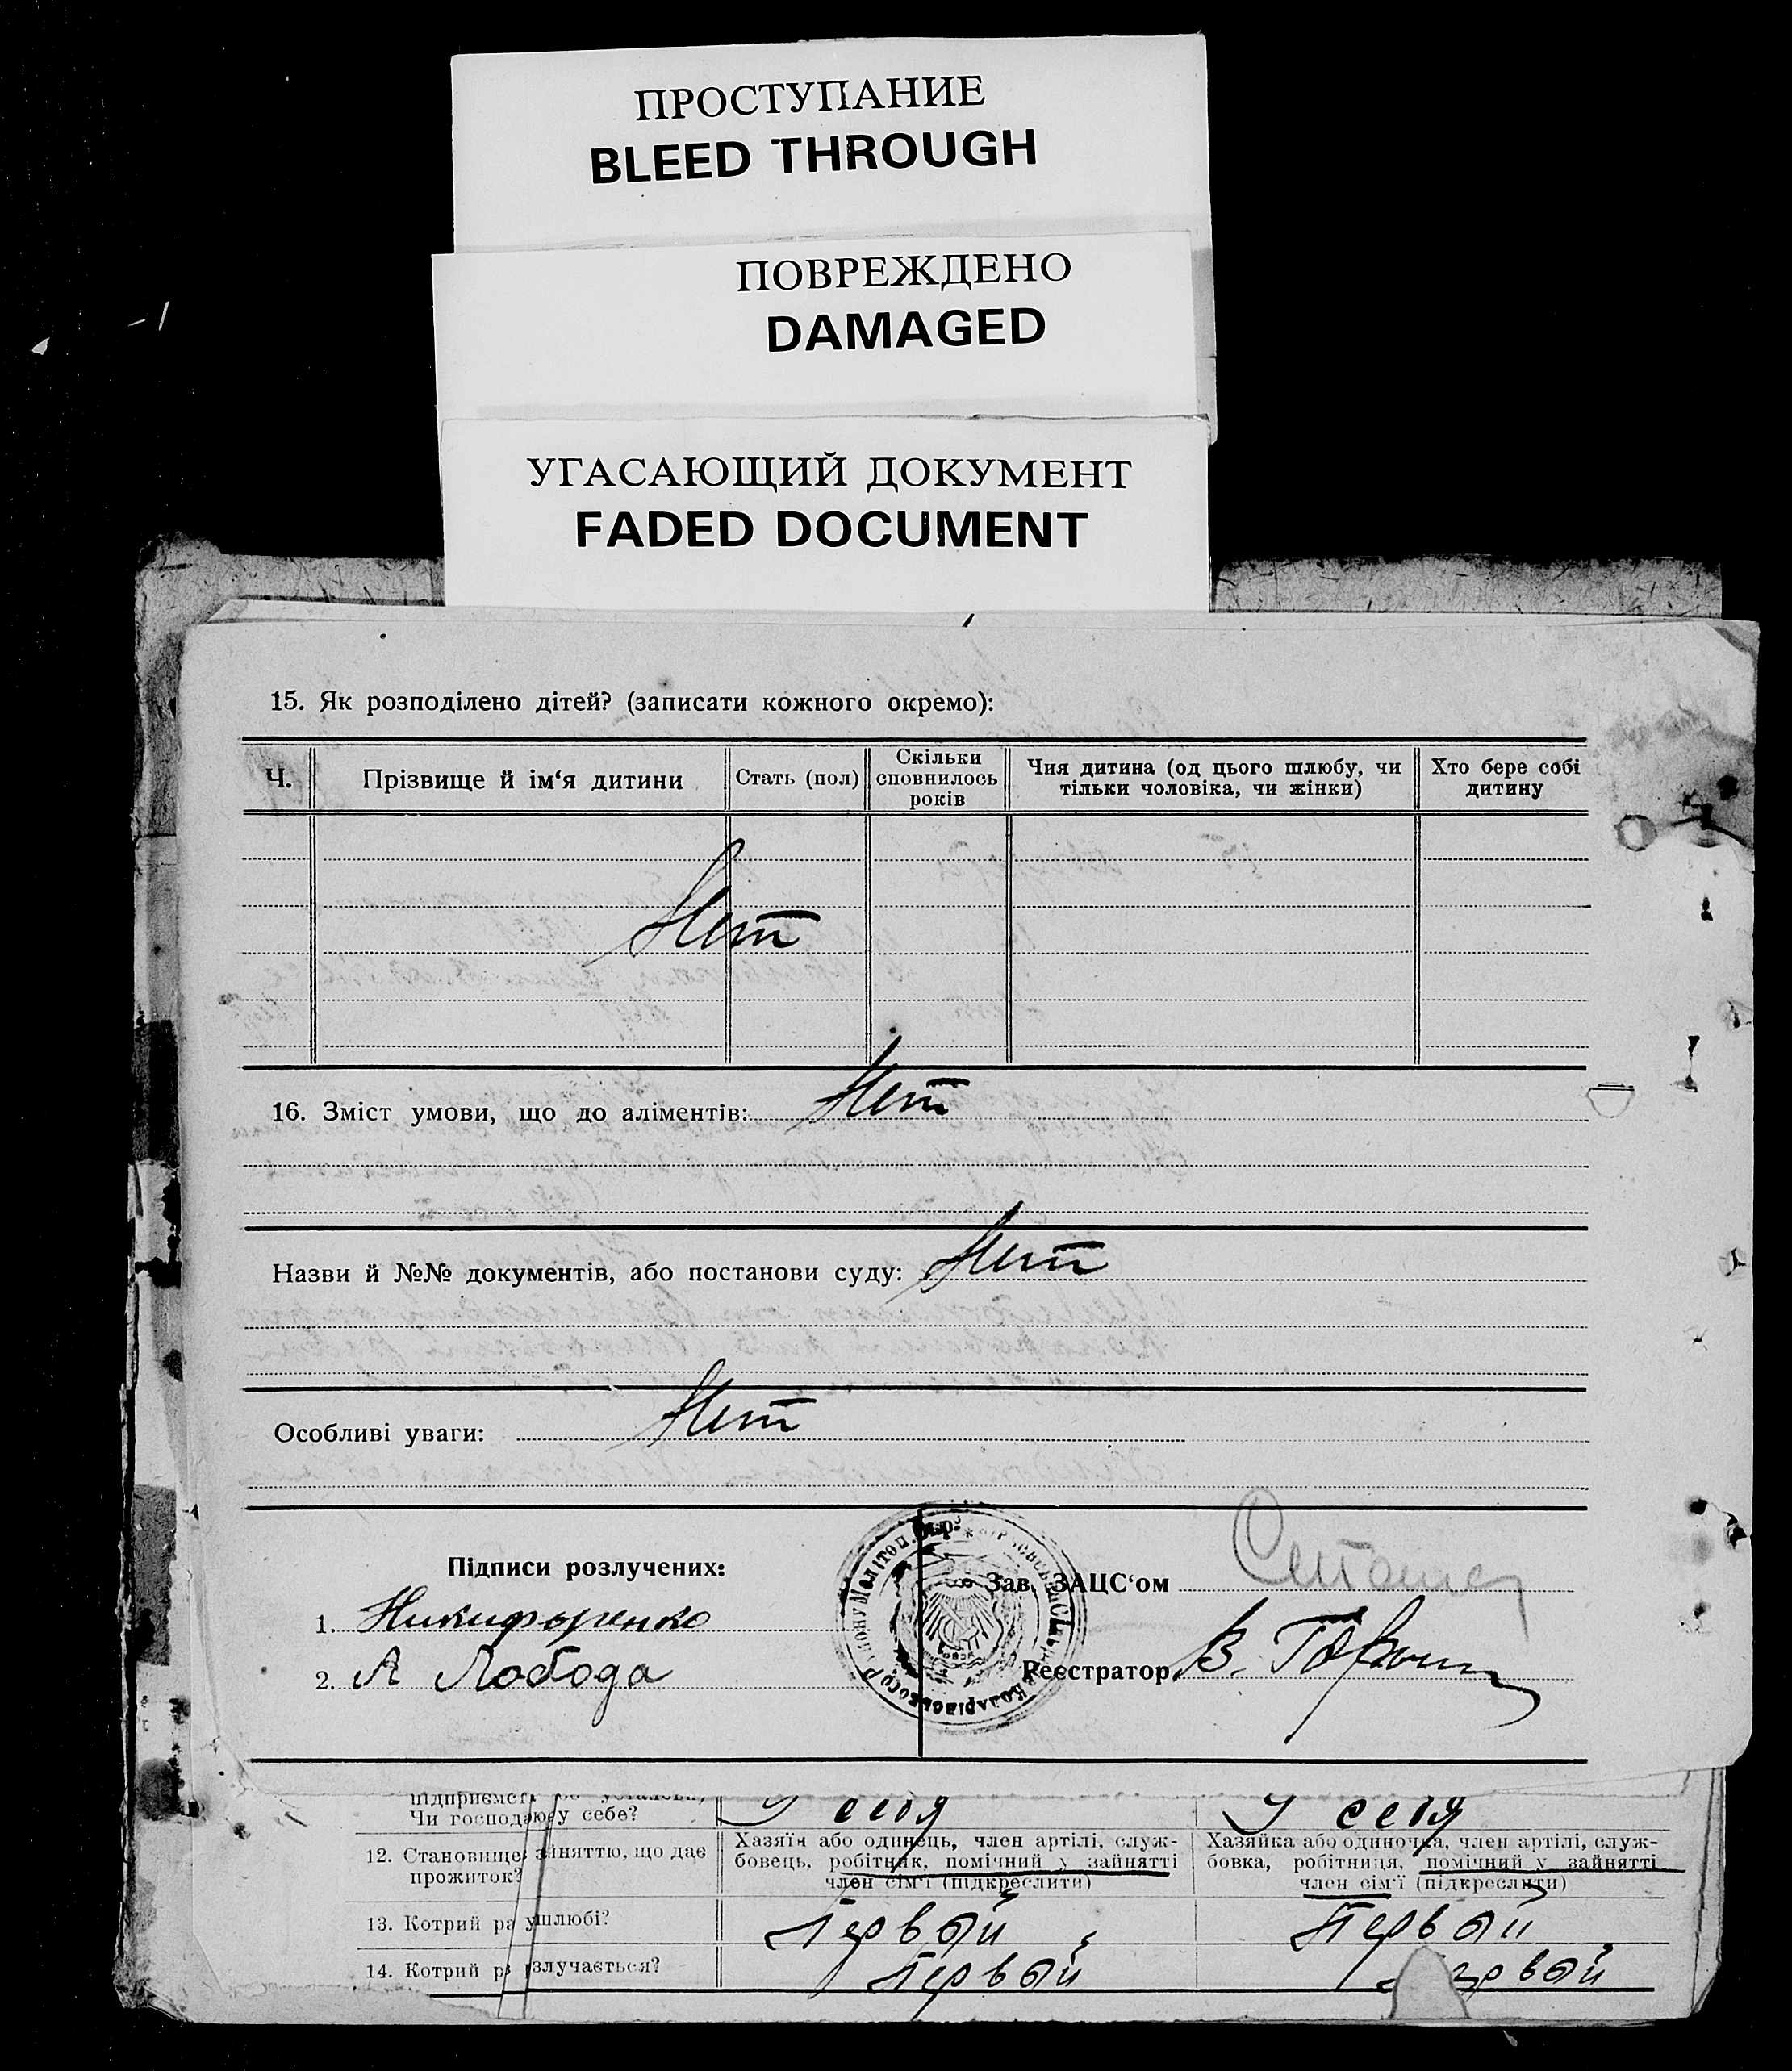 ПРОСТУПАНИЕ
BLEED THROUGH
ПОВРЕЖДЕНО
DAMAGED
УГАСАЮЩИЙ ДОКУМЕНТ
FADED DOCUMENT
15. Як розподілено дітей? (записати кожного окремо):
Ч.
Прізвище й ім‘я дитини
Стать (пол)
Скільки
сповнилось
років
Чия дитина (од цього шлюбу, чи
тільки чоловіка, чи жінки)
Хто бере собі
дитину
Нет
16. Зміст умови, що до аліментів: Нет
Назви й №№ документів, або постанови суду: Нет
Особливі уваги: Нет
Підписи розлучених:
1. Никифоренко
2. А Лобода
Зав. ЗАЦС‘ом
Реєстратор В.
Чи господарює у себе? У себя У себя
12. Становище зайняттю, що дає
прожиток?
Хазяїн або одинець, член артілі, служ-
бовець, робітник, помічний у зайнятті
член сім‘ї (підкреслити)
Хазяйка або одиночка, член артілі, служ-
бовка, робітниця, помічний у зайнятті
член сім‘ї (підкреслити)
13. Котрий ра у шлюбі? Первой Первой
14. Котрий р злучається? Первой Первой